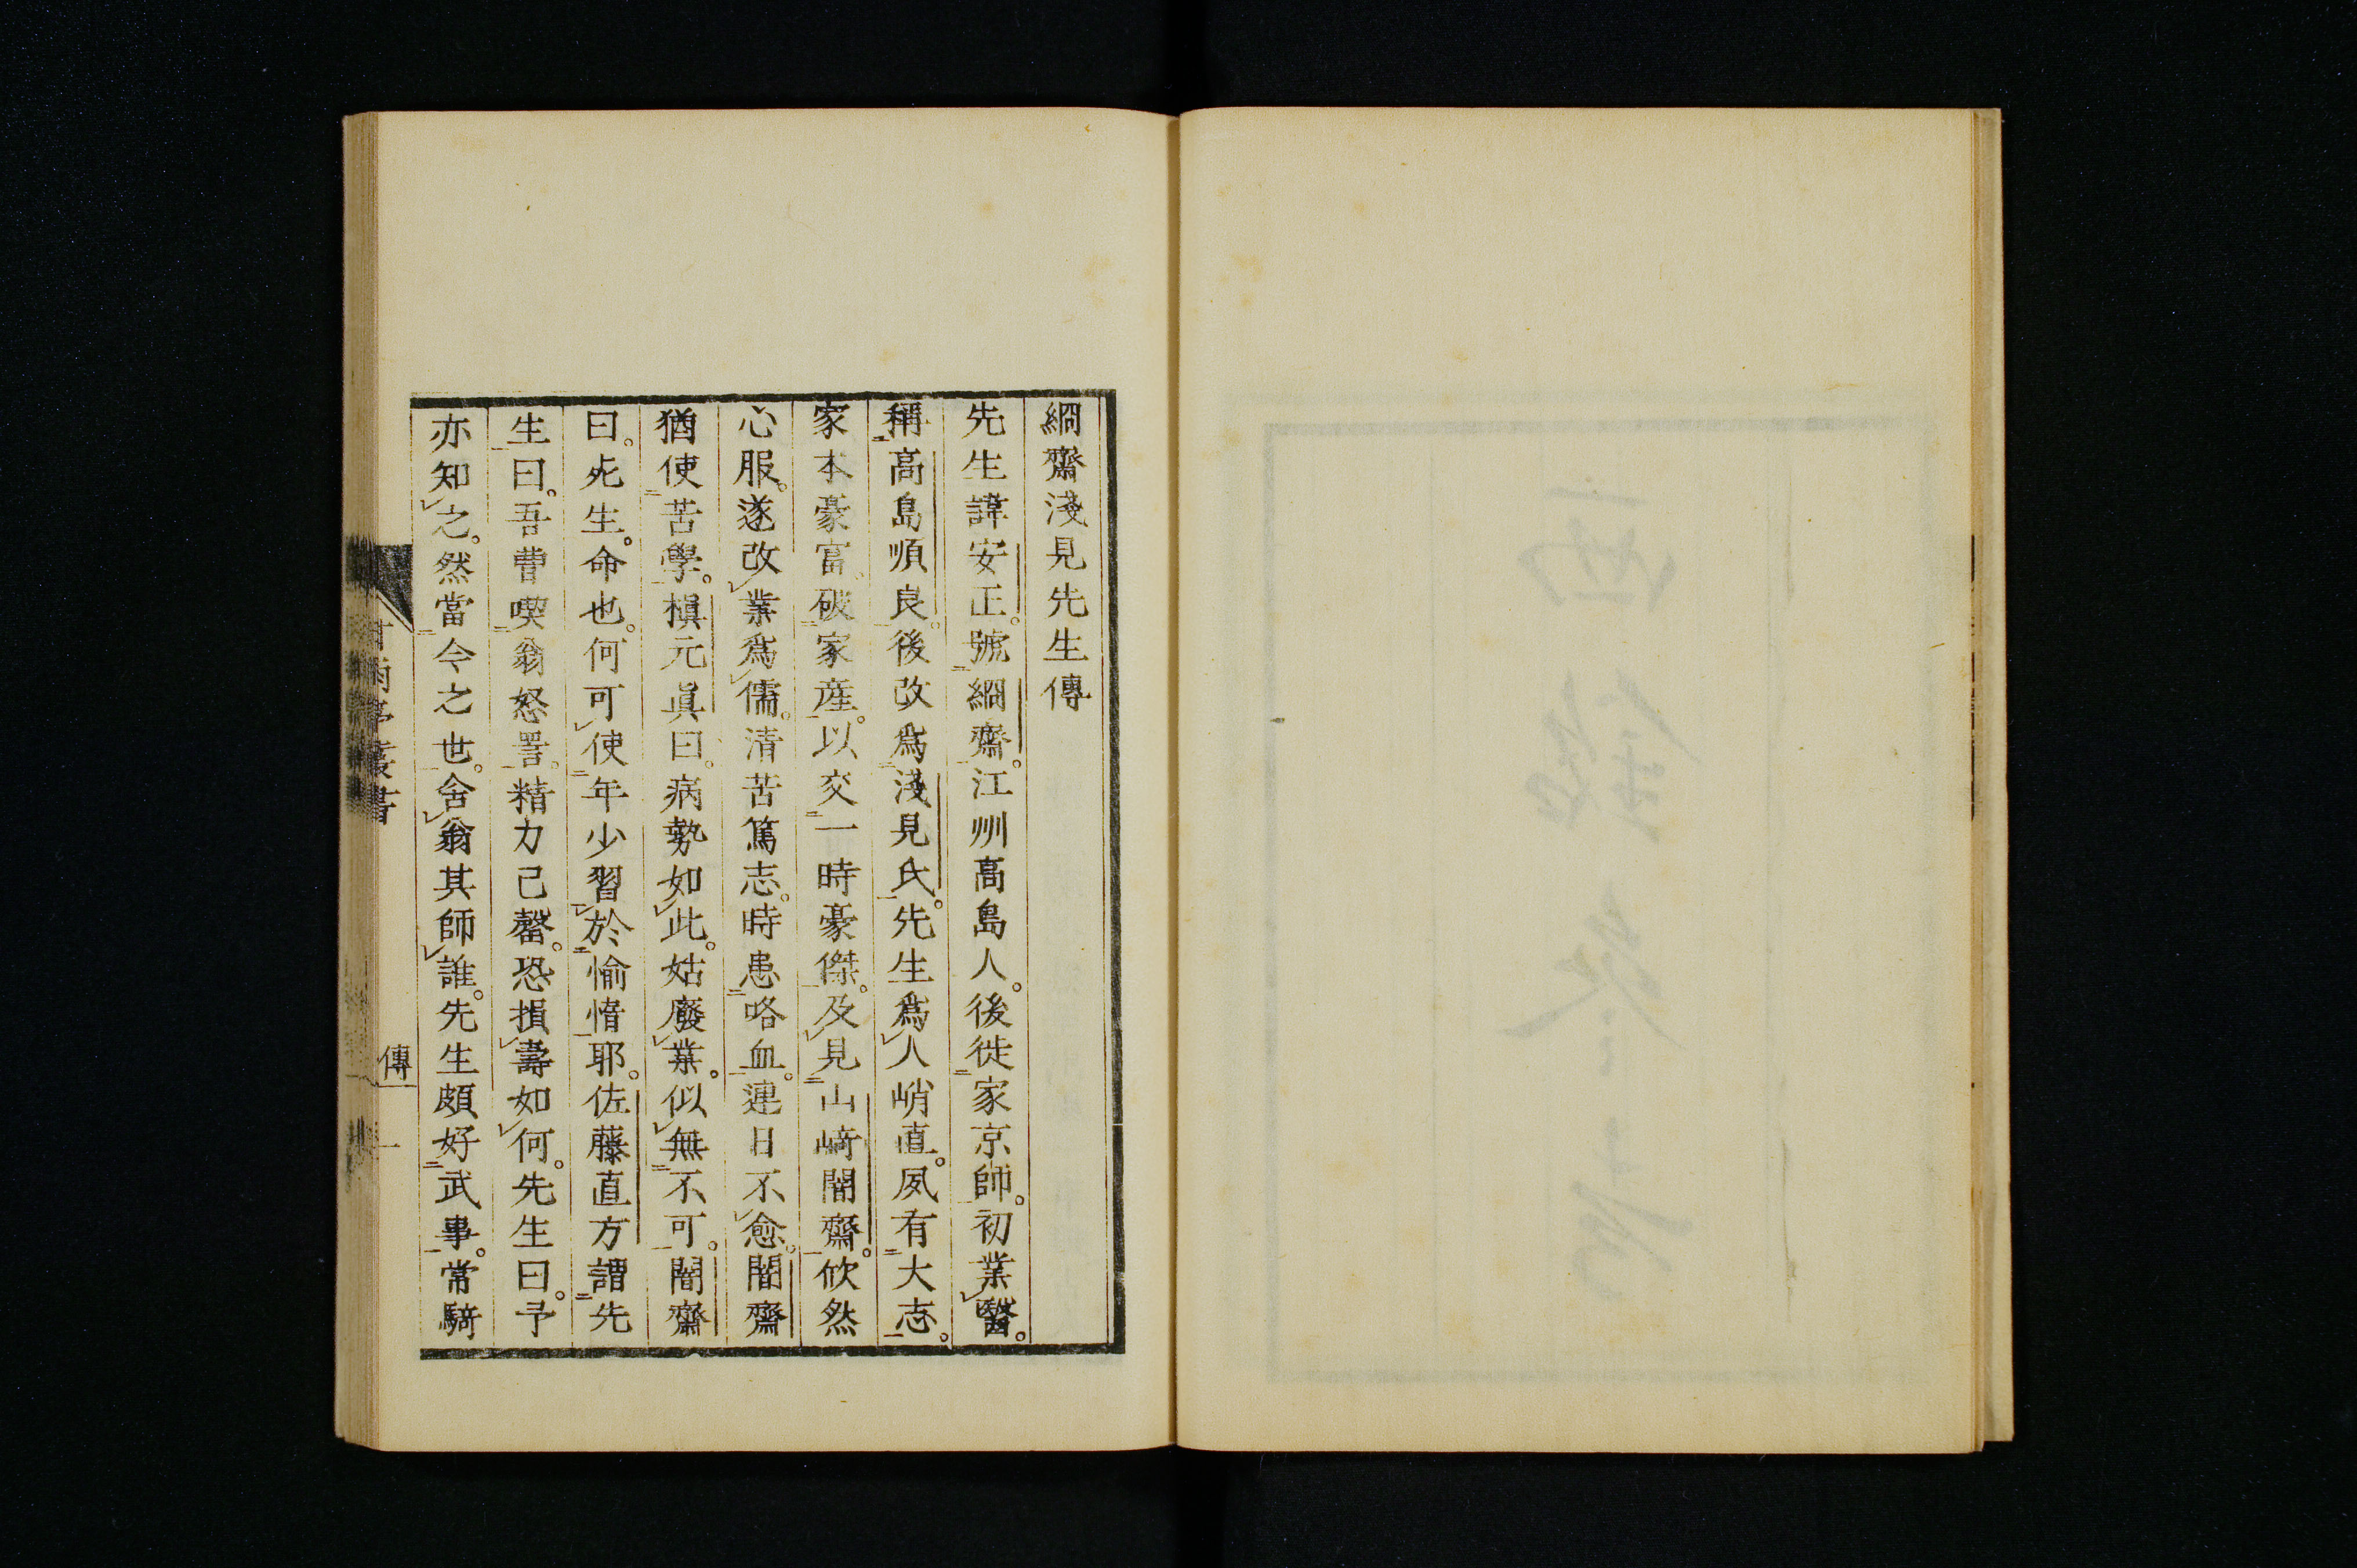 絅齋淺見先生傳
先生諱安正。號絅齋。江州高島人。後徙家京師。初業醫。
稱高島順良。後改爲淺見氏。先生爲人峭直。夙有大志。
家本豪富。破家産。以交一時豪傑。及見山﨑闇齋。欣然
心服。遂改業爲儒。清苦篤志。時患咯血。連日不愈。闇齋
猶使苦學。槇元眞曰。病勢如此。姑廢業。似無不可。闇齋
曰。死生。命也。何可使年少習於愉惰耶。佐藤直方謂先
生曰。吾曹喫翁怒詈。精力已罄。恐損壽如何。先生曰。予
亦知之。然當今之世。舍翁其師誰。先生頗好武事。常騎
甘雨亭叢書
傳
一